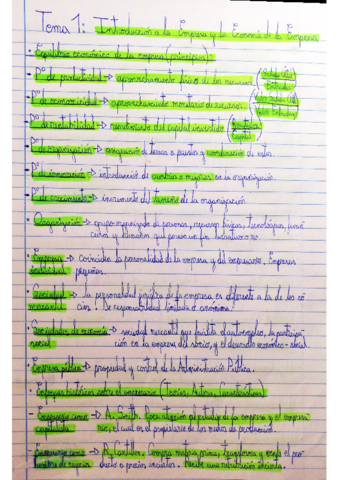 Tema 1: Introducción a la Empresa y la Economía de la Empresa
· Equilibrio económico de la empresa (principios)
· Pº de productividad → aprovechamiento físico de los recursos (Salidas / Entradas)
· Pº de economicidad → aprovechamiento monetario de recursos
· Pº de rentabilidad → rendimiento del capital invertido
· Pº de organización → asignación de tareas a puestos y coordinación de
· Pº de innovación → introducción de cambios o mejoras en la organización.
· Pº de crecimiento → incremento del tamaño de la organización
· Organización → grupo organizado de personas, recursos físicos, tecnológicos, finan
cieros y que posee un fin lucrativo o no.
· Empresa → Coinciden la personalidad de la empresa y del empresario. Empresas
individual pequeñas.
· Sociedad → la personalidad jurídica de la empresa es diferente a la de los so
mercantil cios. De responsabilidad limitada o anónima.
· Sociedades de economía → sociedad mercantil que facilita el autoempleo, la participa
social ción en la empresa del socio, y el desarrollo económico-social.
· Empresa pública → propiedad y control de la Administración Pública.
· Enfoques históricos sobre el empresario (Teorías, Autores, Características)
· Empresario como → A. Smith. Poca atención al estudio de la empresa y el empresa
capitalista rio, el cual es el propietario de los medios de producción.
· Empresario como → R. Cantillon. Compra materias primas, transforma y vende el pro
hombre de negocio ducto a precios inciertos. Recibe una retribución incierta.